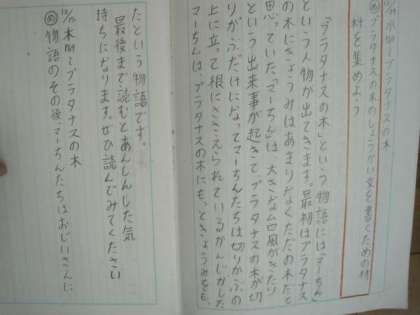 12/17 木 晴 プラタナスの木
め プラタナスの木のしょうかい文を書くための材
料を集めよう
「プラタナスの木」という物語には「マーちん」
という人物が出てきます。最初はプラタナス
の木にきょうみはあまりなくただの木だと
思っていた「マーちん」は、大きな台風がきたり
という出来事が起きてプラタナスの木が切
りかぶだけになってマーちんたちは切りかぶの
上に立って根にささえられているかんじがした
マーちんは、プラタナスの木にも、ときょうみをも
たという物語です。
最後まで読むとあんしんした気
持ちになります。ぜひ読んでみてください
12/18 木 晴 プラタナスの木
め 物語のその後、マーちんたちはおじいさんに